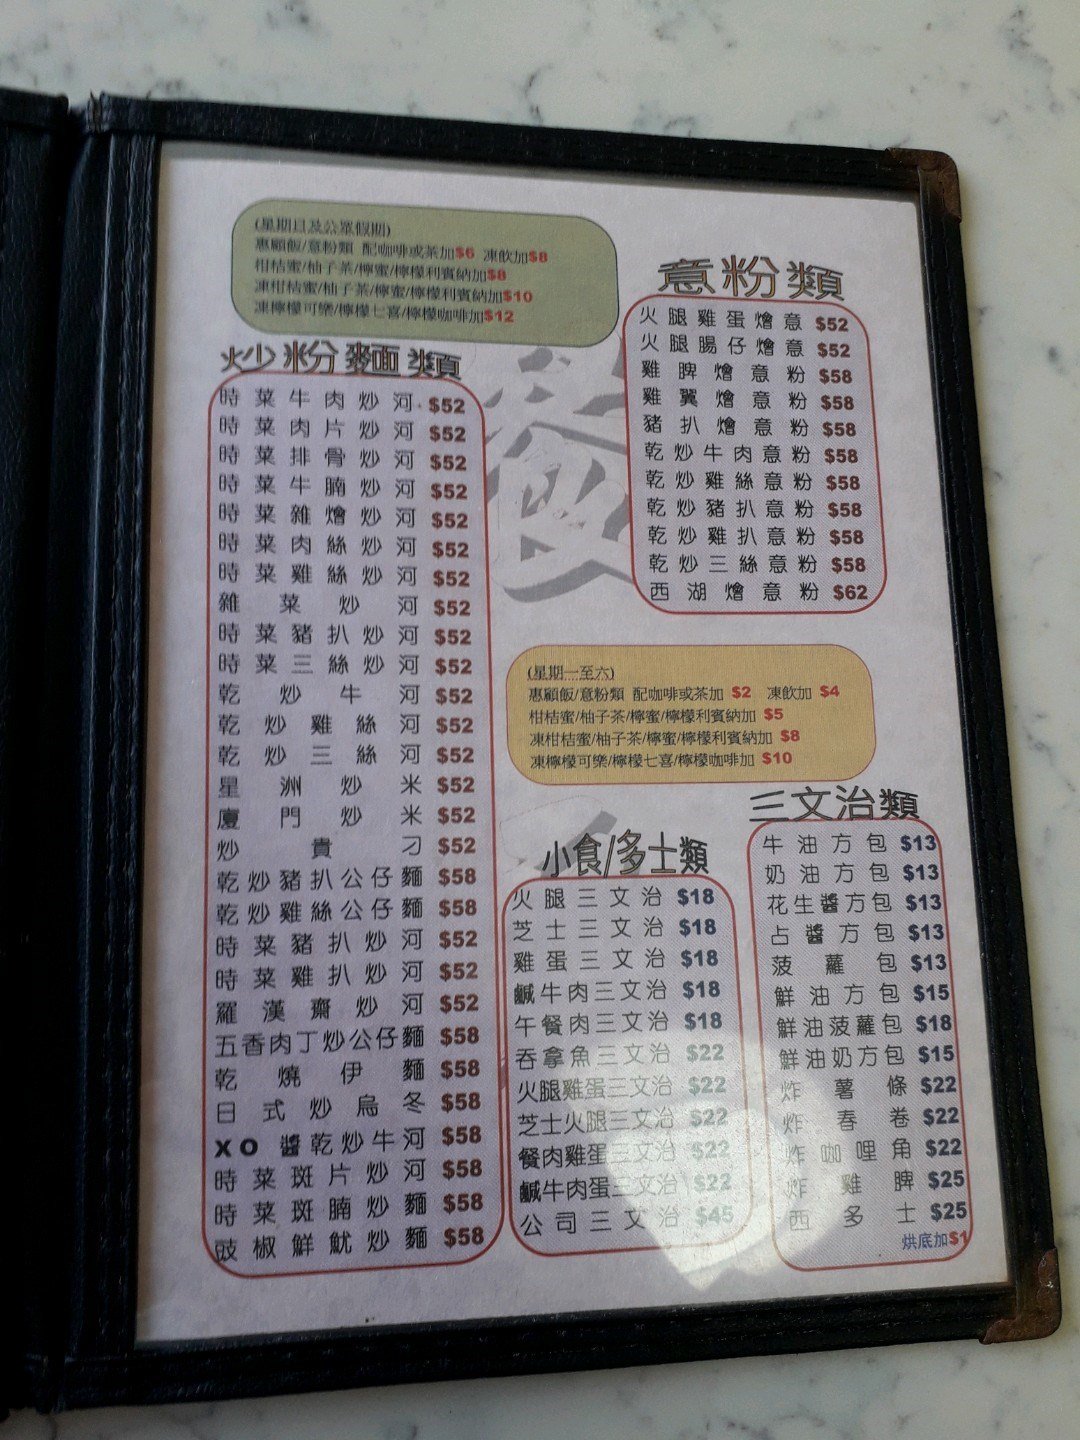 (星期日及公眾假期)
惠顧飯/意粉類 配咖啡或茶加$6 凍飲加$8
柑桔蜜/柚子茶/檸蜜/檸檬利賓納加$8
凍柑桔蜜/柚子茶/檸蜜/檸檬利賓納加$10
凍檸檬可樂/檸檬七喜/檸檬咖啡加$12
炒粉麵類
時菜牛肉炒河 $52
時菜肉片炒河 $52
時菜排骨炒河 $52
時菜牛腩炒河 $52
時菜雜燴炒河 $52
時菜肉絲炒河 $52
時菜雞絲炒河 $52
雜菜炒河 $52
時菜豬扒炒河 $52
時菜三絲炒河 $52
乾炒牛河 $52
乾炒雞絲河 $52
乾炒三絲河 $52
星洲炒米 $52
廈門炒米 $52
炒貴刁 $52
乾炒豬扒公仔麵 $58
乾炒雞絲公仔麵 $58
時菜豬扒炒河 $52
時菜雞扒炒河 $52
羅漢齋炒河 $52
五香肉丁炒公仔麵 $58
乾燒伊麵 $58
日式炒烏冬 $58
XO醬乾炒牛河 $58
時菜斑片炒河 $58
時菜斑腩炒麵 $58
豉椒鮮魷炒麵 $58
意粉類
火腿雞蛋燴意 $52
火腿腸仔燴意 $52
雞脾燴意粉 $58
雞翼燴意粉 $58
豬扒燴意粉 $58
乾炒牛肉意粉 $58
乾炒雞絲意粉 $58
乾炒豬扒意粉 $58
乾炒雞扒意粉 $58
乾炒三絲意粉 $58
西湖燴意粉 $62
(星期一至六)
惠顧飯/意粉類 配咖啡或茶加 $2 凍飲加 $4
柑桔蜜/柚子茶/檸蜜/檸檬利賓納加 $5
凍柑桔蜜/柚子茶/檸蜜/檸檬利賓納加 $8
凍檸檬可樂/檸檬七喜/檸檬咖啡加 $10
小食/多士類
火腿三文治 $18
芝士三文治 $18
雞蛋三文治 $18
鹹牛肉三文治 $18
午餐肉三文治 $18
吞拿魚三文治 $22
火腿雞蛋三文治 $22
芝士火腿三文治 $22
餐肉雞蛋三文治 $22
鹹牛肉蛋三文治 $22
公司三文治 $45
三文治類
牛油方包 $13
奶油方包 $13
花生醬方包 $13
占醬方包 $13
菠蘿包 $13
鮮油方包 $15
鮮油菠蘿包 $18
鮮油奶方包 $15
炸薯條 $22
炸春卷 $22
炸咖哩角 $22
炸雞脾 $25
西多士 $25
烘底加$1